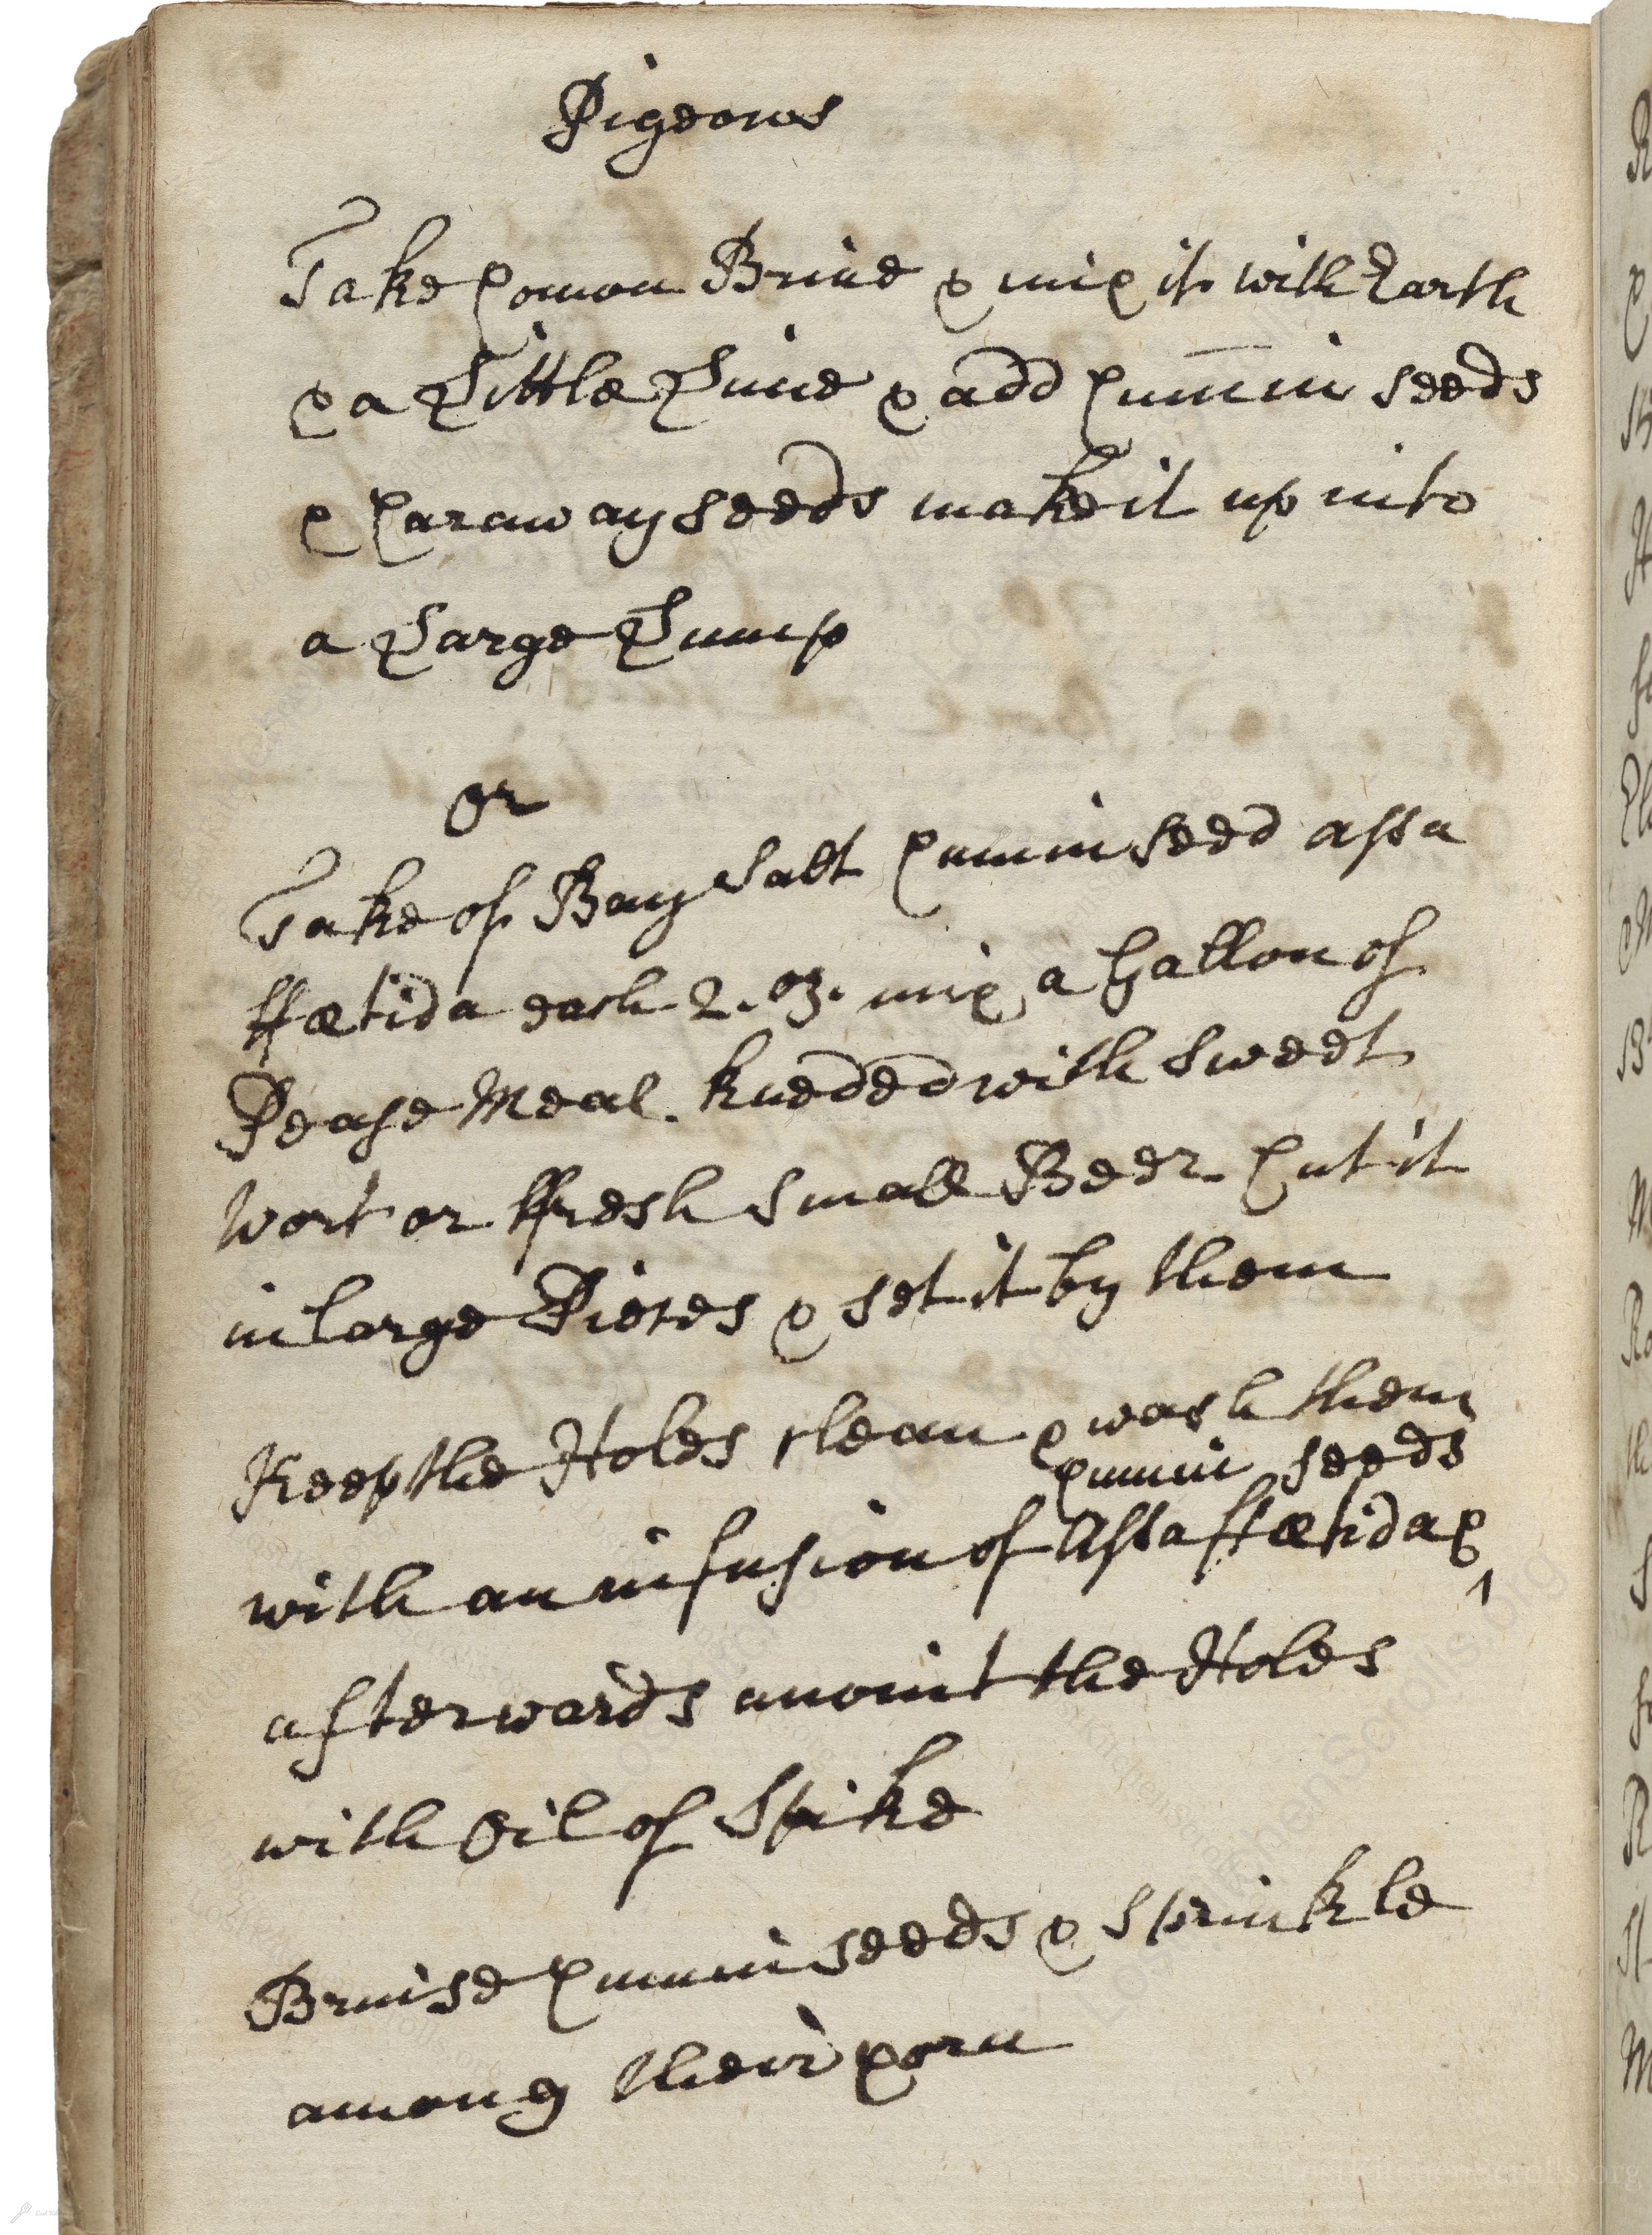 Pigeons
Take Comon Brine & mix it with Earth
& a Little Lime & add Cum̅in seeds
& Caraway seeds make it up into
a Large Lump
or
Take of Bay Salt Cummin seed assa
ffœtida each 2. oz. mix a Gallon of
Pease Meal. kneded with sweet
wort or ffresh small Beer. Cut it
in large Pieces & set it by them
Keep the Holes clean & wash them
cummin seeds
with an infusion of Assa ffœtida & ^
afterwards anoint the Holes
with Oil of Spike
Bruise Cummin seeds & sprinkle
among their Corn